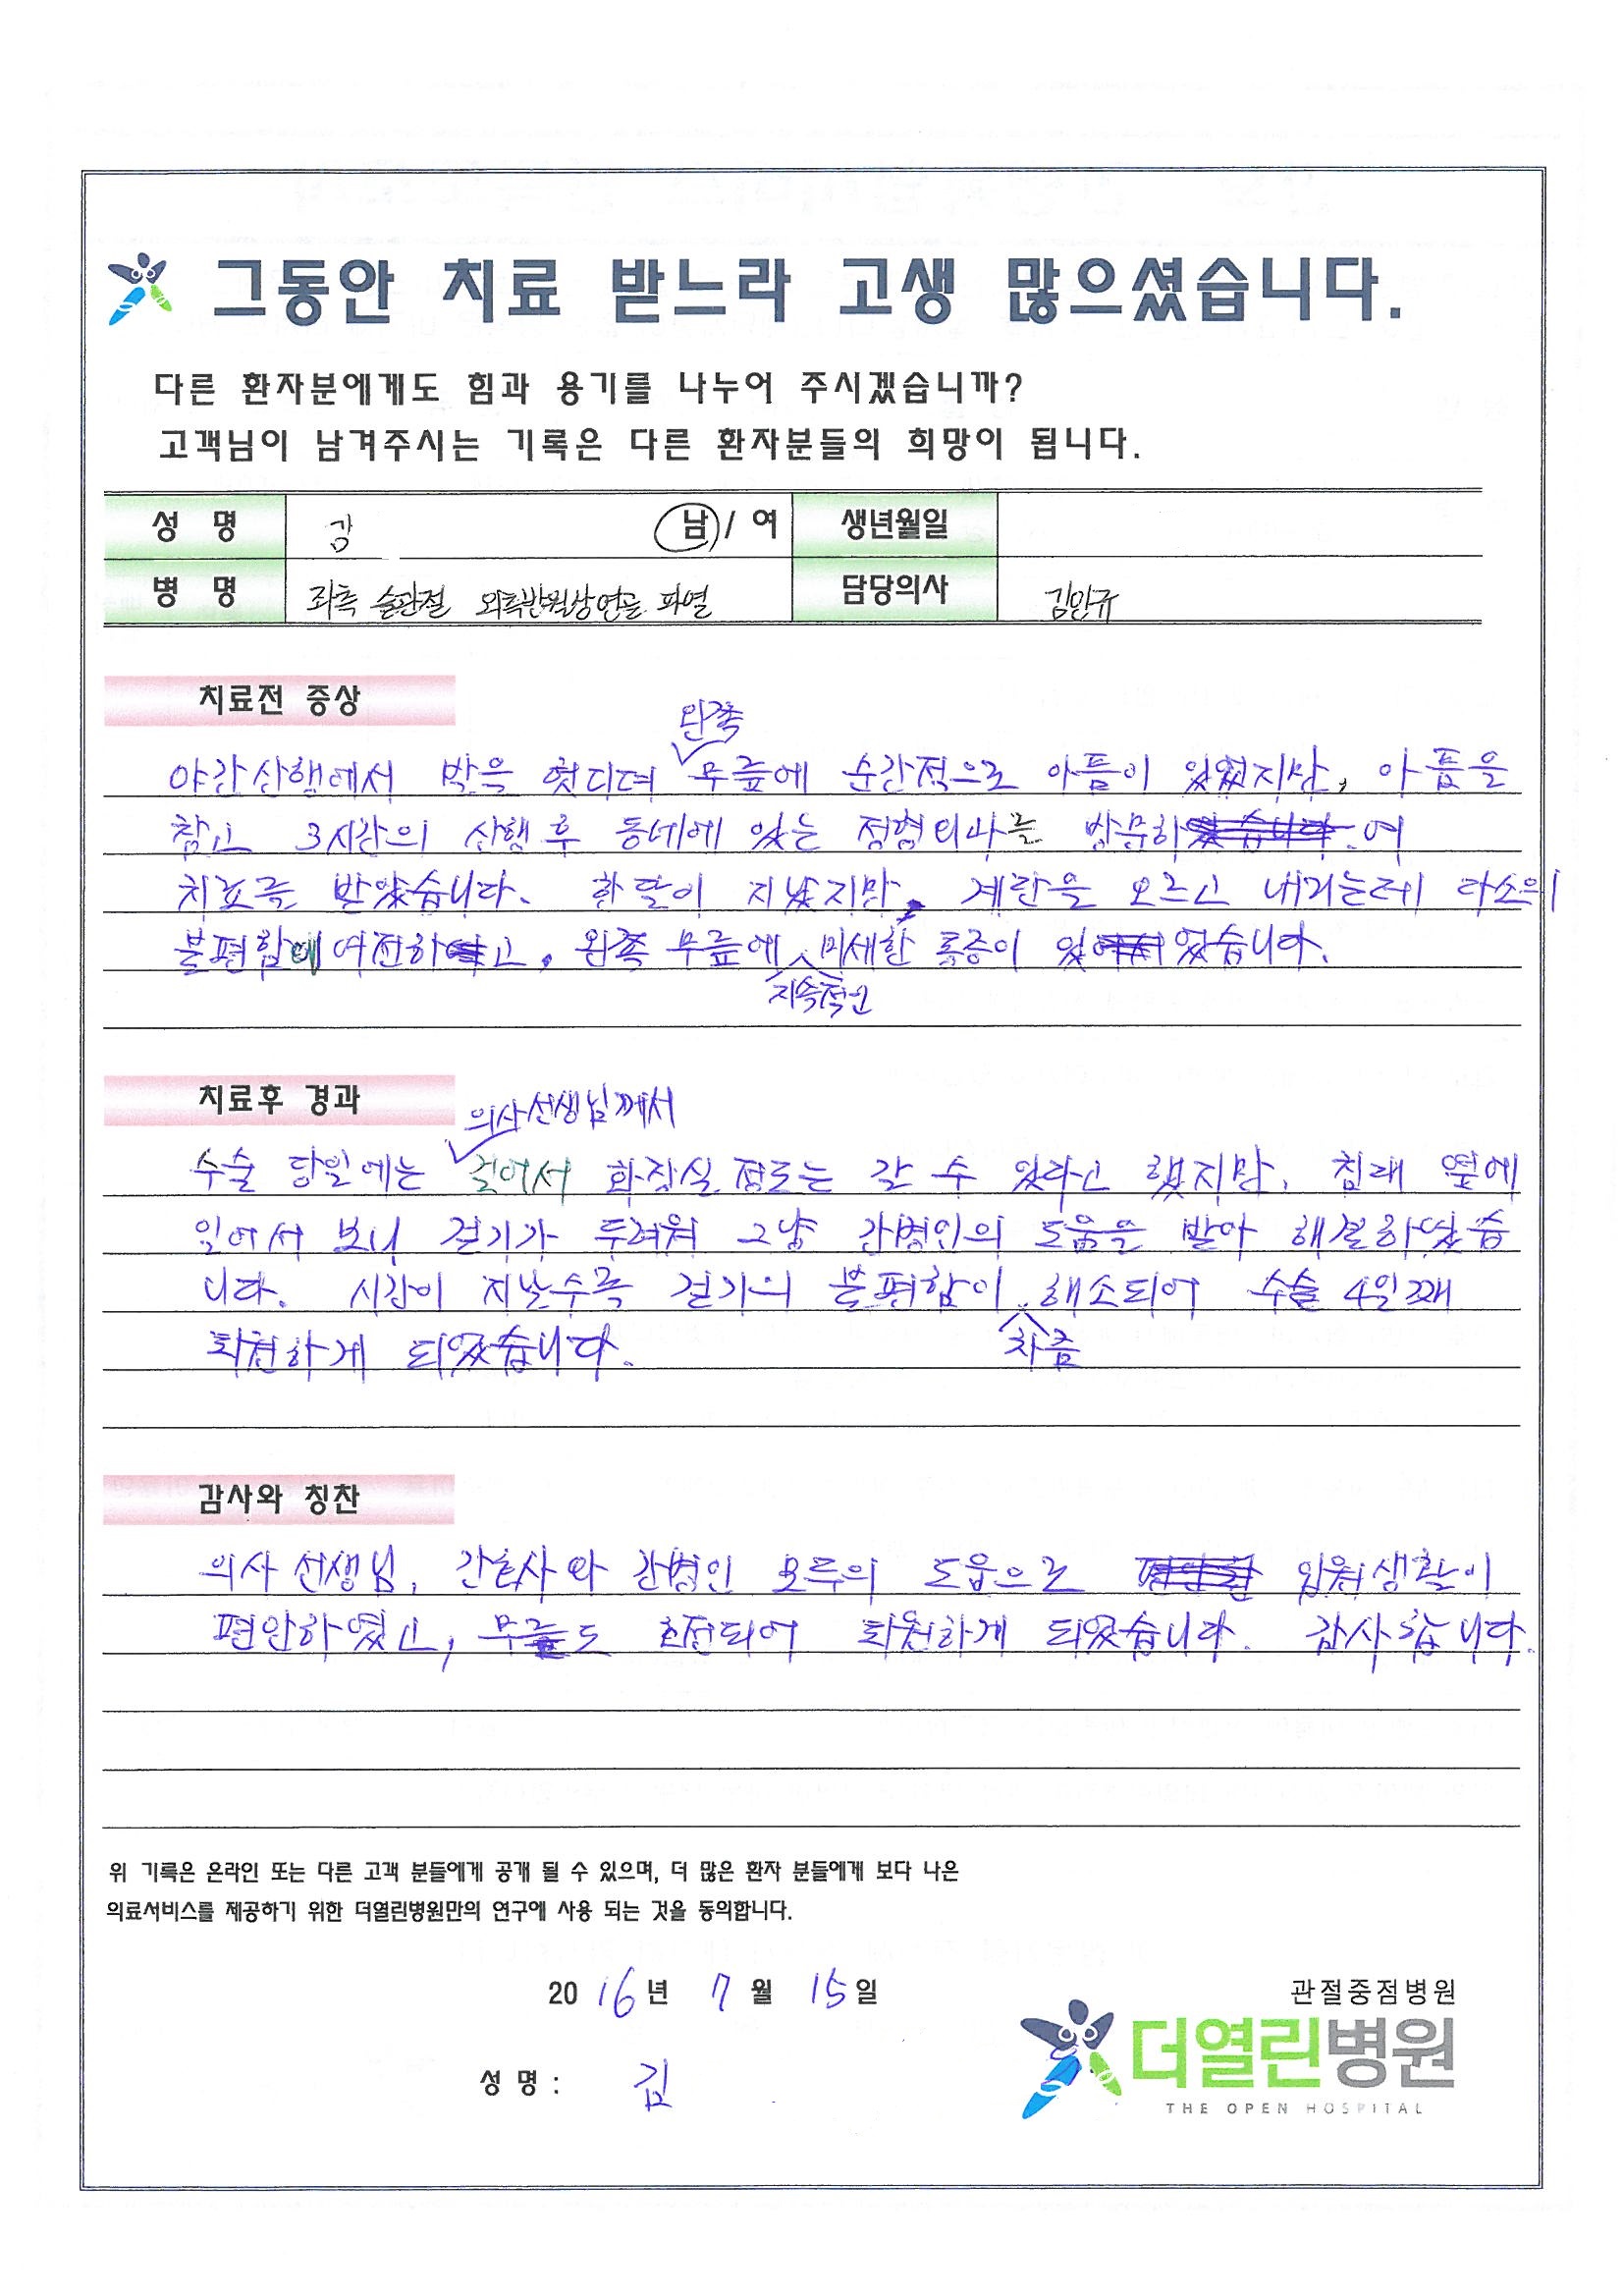 그동안 치료 받느라 고생 많으셨습니다.
다른 환자분에게도 힘과 용기를 나누어 주시겠습니까?
고객님이 남겨주시는 기록은 다른 환자분들의 희망이 됩니다.
성 명 김 남 / 여 생년월일
병 명 좌측 슬관절 외측반월상연골 파열 담당의사 김민규
치료전 증상
왼쪽
야간산행에서 발을 헛디뎌 무릎에 순간적으로 아픔이 있었지만, 아픔을
참고 3시간의 산행 후 동네에 있는 정형외과를 방문하여
치료를 받았습니다. 한달이 지났지만, 계단을 오르고 내리는데 다소의
불편함이 여전하고, 왼쪽 무릎에 미세한 통증이 있었습니다.
지속적인
치료후 경과
의사선생님께서
수술 당일에는 걸어서 화장실 정도는 갈 수 있다고 했지만, 침대 옆에
일어서 보니 걷기가 두려워 그냥 간병인의 도움을 받아 해결하였습
니다. 시간이 지날수록 걷기의 불편함이 해소되어 수술 4일째
차츰
퇴원하게 되었습니다.
감사와 칭찬
의사 선생님, 간호사와 간병인 모두의 도움으로 입원생활이
편안하였고, 무릎도 호전되어 퇴원하게 되었습니다. 감사합니다.
위 기록은 온라인 또는 다른 고객 분들에게 공개 될 수 있으며, 더 많은 환자 분들에게 보다 나은
의료서비스를 제공하기 위한 더열린병원만의 연구에 사용 되는 것을 동의합니다.
20 16년 7 월 15 일
관절중점병원
더열린병원
THE OPEN HOSPITAL
성 명 : 김